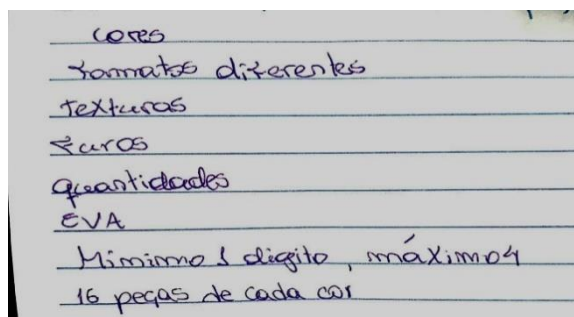 cores
formatos diferentes
texturas
furos
quantidades
EVA
Mínimo 1 digito, máximo 4
16 peças de cada cor